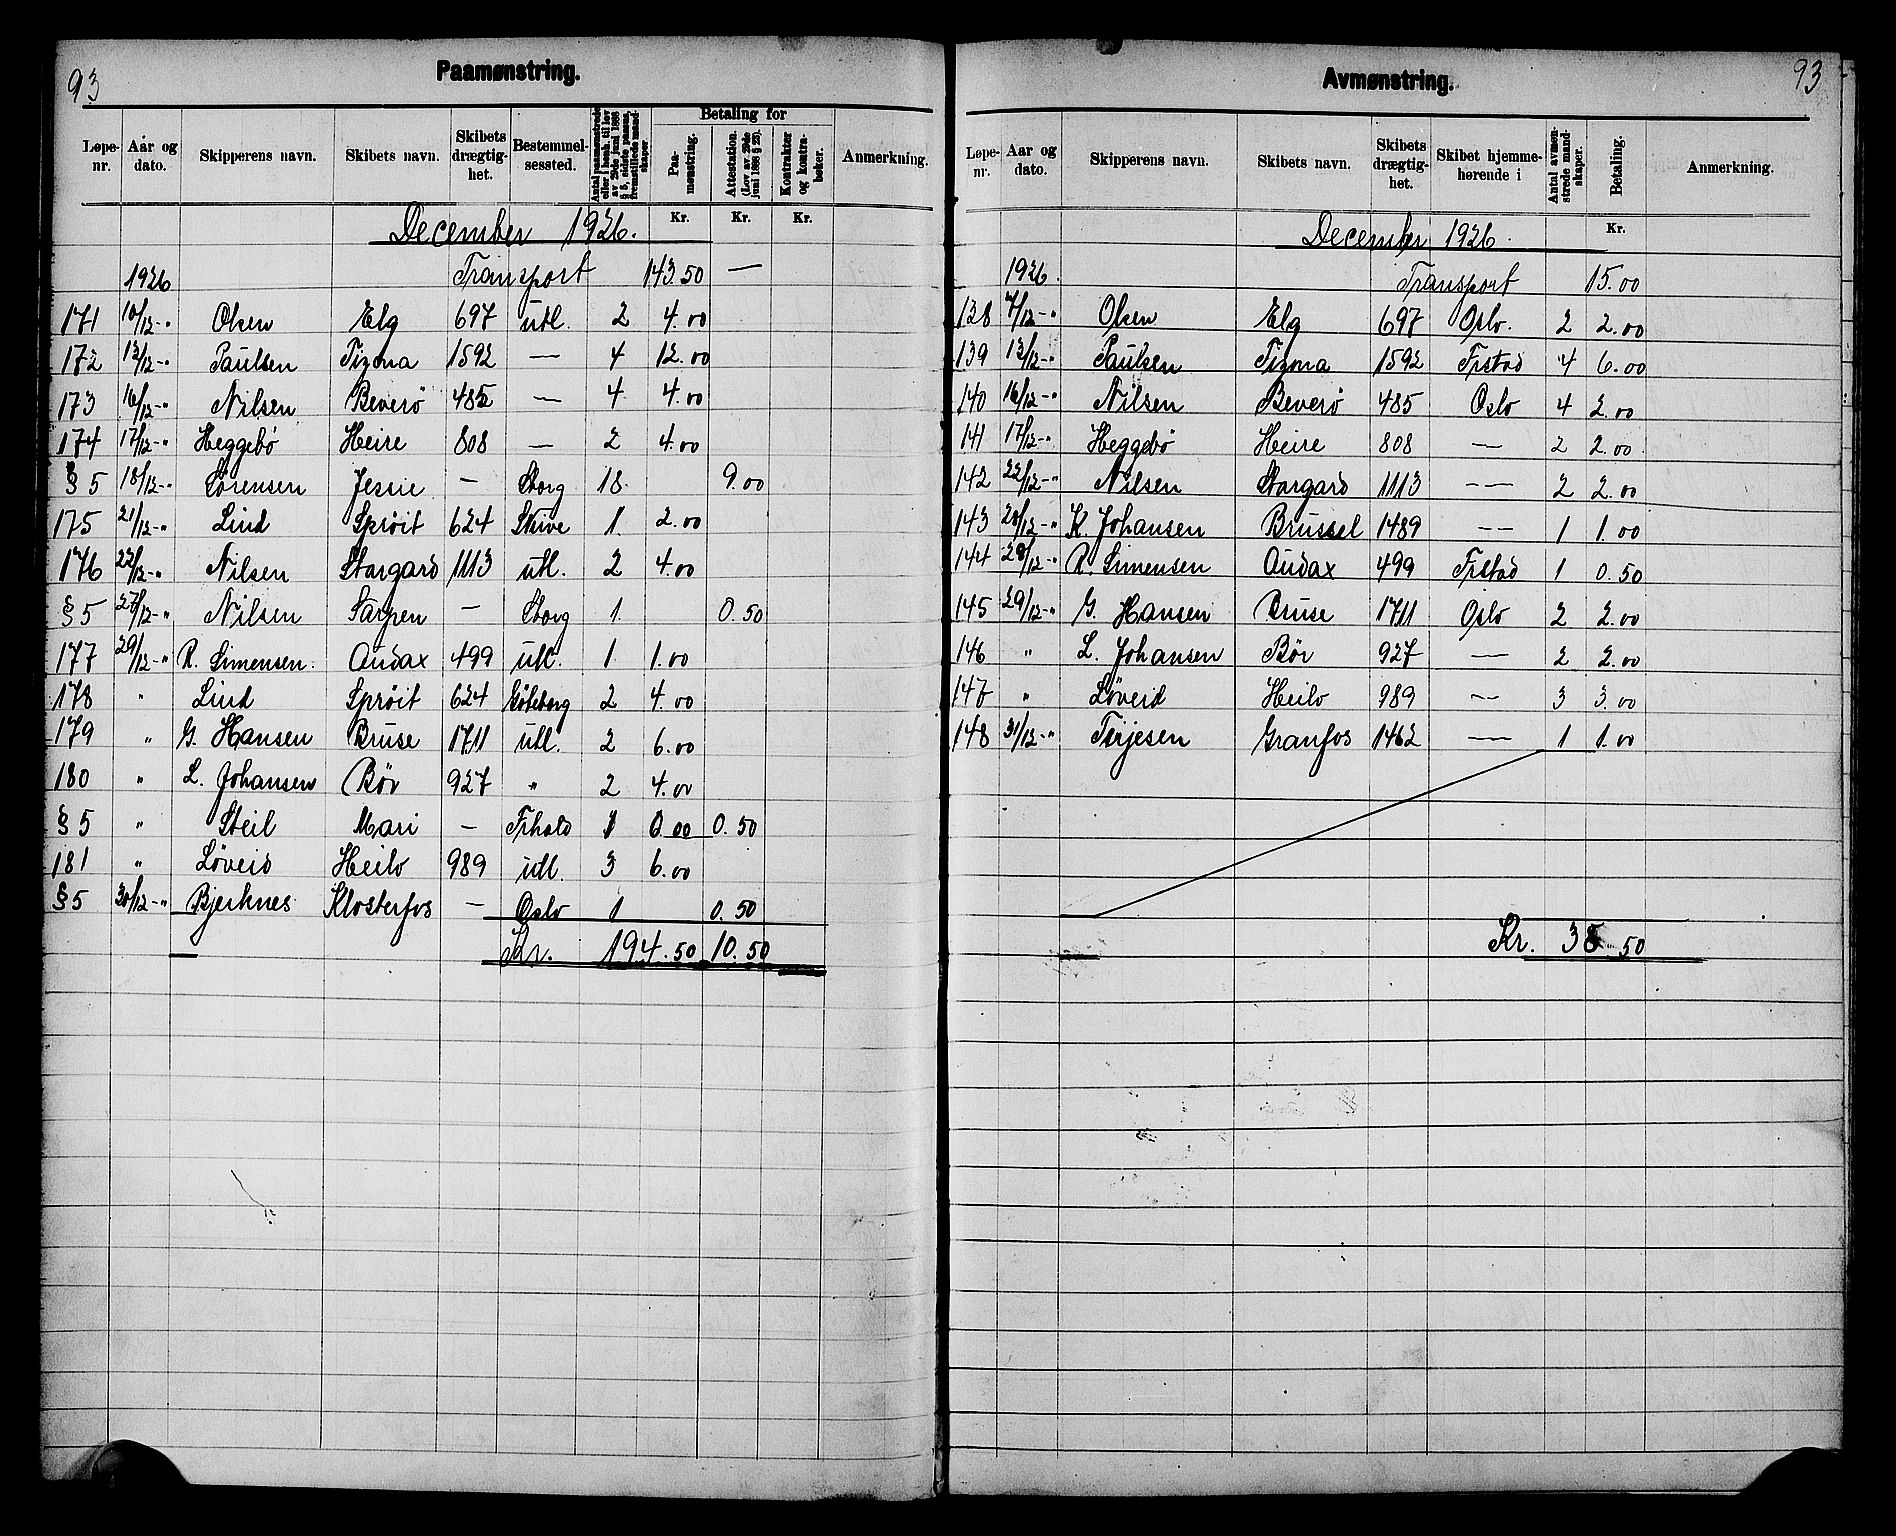 93
Paamønstring.
Løpe-nr. Aar og dato. Skipperens navn. Skibets navn. Skibets drægtig-het. Bestemmel-sessted. Antal paamønstrede eller i henh. til lov av 29de juni 1888 § 5, sidste passus, fremstillede mand-skaper Betaling for Paa-mønstring. Attestation. (Lov av. 29de juni 1888 § 25). Kontrakter og kontra-bøker. Anmerkning.
Kr. Kr. Kr.
December 1926.
1926 Transport 143.50 —
171 10/12 -" Olsen Elg 697 utl. 2 4.00
172 13/12 -" Paulsen Tizona 1592 — 4 12.00
173 16/12 -" Nilsen Beverø 485 — 4 4.00
174 17/12 -" Heggebø Heire 808 — 2 4.00
§ 5 18/12 -" Sørensen Jessie — Sborg 18. 9.00
175 21/12 -" Lind Sprøit 624 Skive 1. 2.00
176 22/12 -" Nilsen Stargard 1113 utl. 2 4.00
§ 5 27/12 -" Nilsen Sarpen — Sborg 1. 0.50
177 29/12 -" R. Simensen. Audax 499 utl. 1 1.00
178 " Lind Sprøit 624 Göteborg 2 4.00
179 " G. Hansen Bruse 1711 utl. 2 6.00
180 " L. Johansen Bør 927 " 2 4.00
§ 5 " Steil Mari — Frhald 1 0.00 0.50
181 " Løveid Heilo 989 utl. 3 6.00
§ 5 30/12 -" Bjerknes Klosterfos — Oslo 1 0.50
Kr. 194.50 10.50
93
Avmønstring.
Løpe-nr. Aar og dato. Skipperens navn. Skibets navn. Skibets drægtig-het. Skibet hjemme-hørende i Antal avmøn-strede mand-skaper. Betaling. Anmerkning.
Kr.
December 1926.
1926. Transport 15.00
138 7/12 -" Olsen Elg 697 Oslo. 2 2.00
139 13/12 -" Paulsen Tizona 1592 Frstad 4 6.00
140 16/12 -" Nilsen Beverø 485 Oslo 4 2.00
141 17/12 -" Heggebø Heire 808 — 2 2.00.
142 22/12 -" Nilsen Stargard 1113 — 2 2.00
143 28/12 -" K. Johansen Brussel 1489 — 1 1.00
144 29/12 -" R. Simensen Audax 499 Frstad 1 0.50
145 29/12 -" G. Hansen Bruse 1711 Oslo 2 2.00
146 " L. Johansen Bør 927 — 2 2.00
147 " Løveid Heilo 989 — 3 3.00
148 31/12 -" Tirjesen Granfos 1462 — 1 1.00
Kr. 38.50